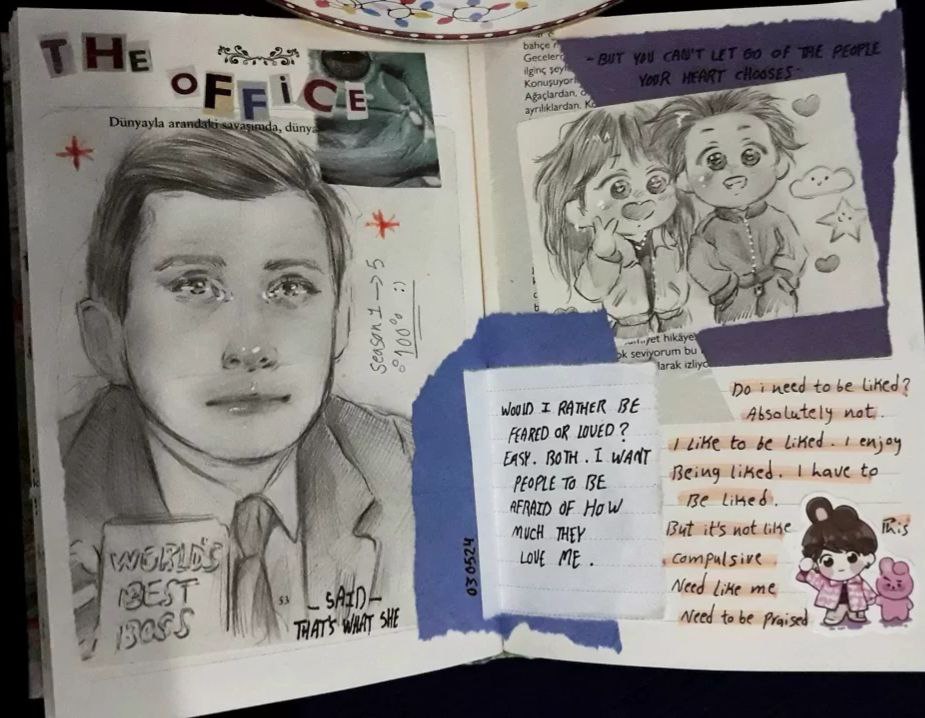 THE
OFFICE
Dünyayla arandaki savaşımda, dünya
Season 1 → 5
%100 :)
WORLD'S
BEST
BOSS
53
- SAID -
THAT'S WHAT SHE
bahçe
Geceleri
ilginç şey
Konuşuyor
Ağaçlardan,
ayrılıklardan.
- BUT YOU CAN'T LET GO OF THE PEOPLE
YOUR HEART CHOOSES -
hikâye
ok seviyorum bu
larak izliyo
WOULD I RATHER BE
FEARED OR LOVED?
EASY. BOTH. I WANT
PEOPLE TO BE
AFRAID OF HOW
MUCH THEY
LOVE ME.
030524
Do i need to be liked?
Absolutely not.
I like to be liked. I enjoy
Being liked. I have to
Be liked.
But it's not like This
compulsive
Need like me
Need to be Praised